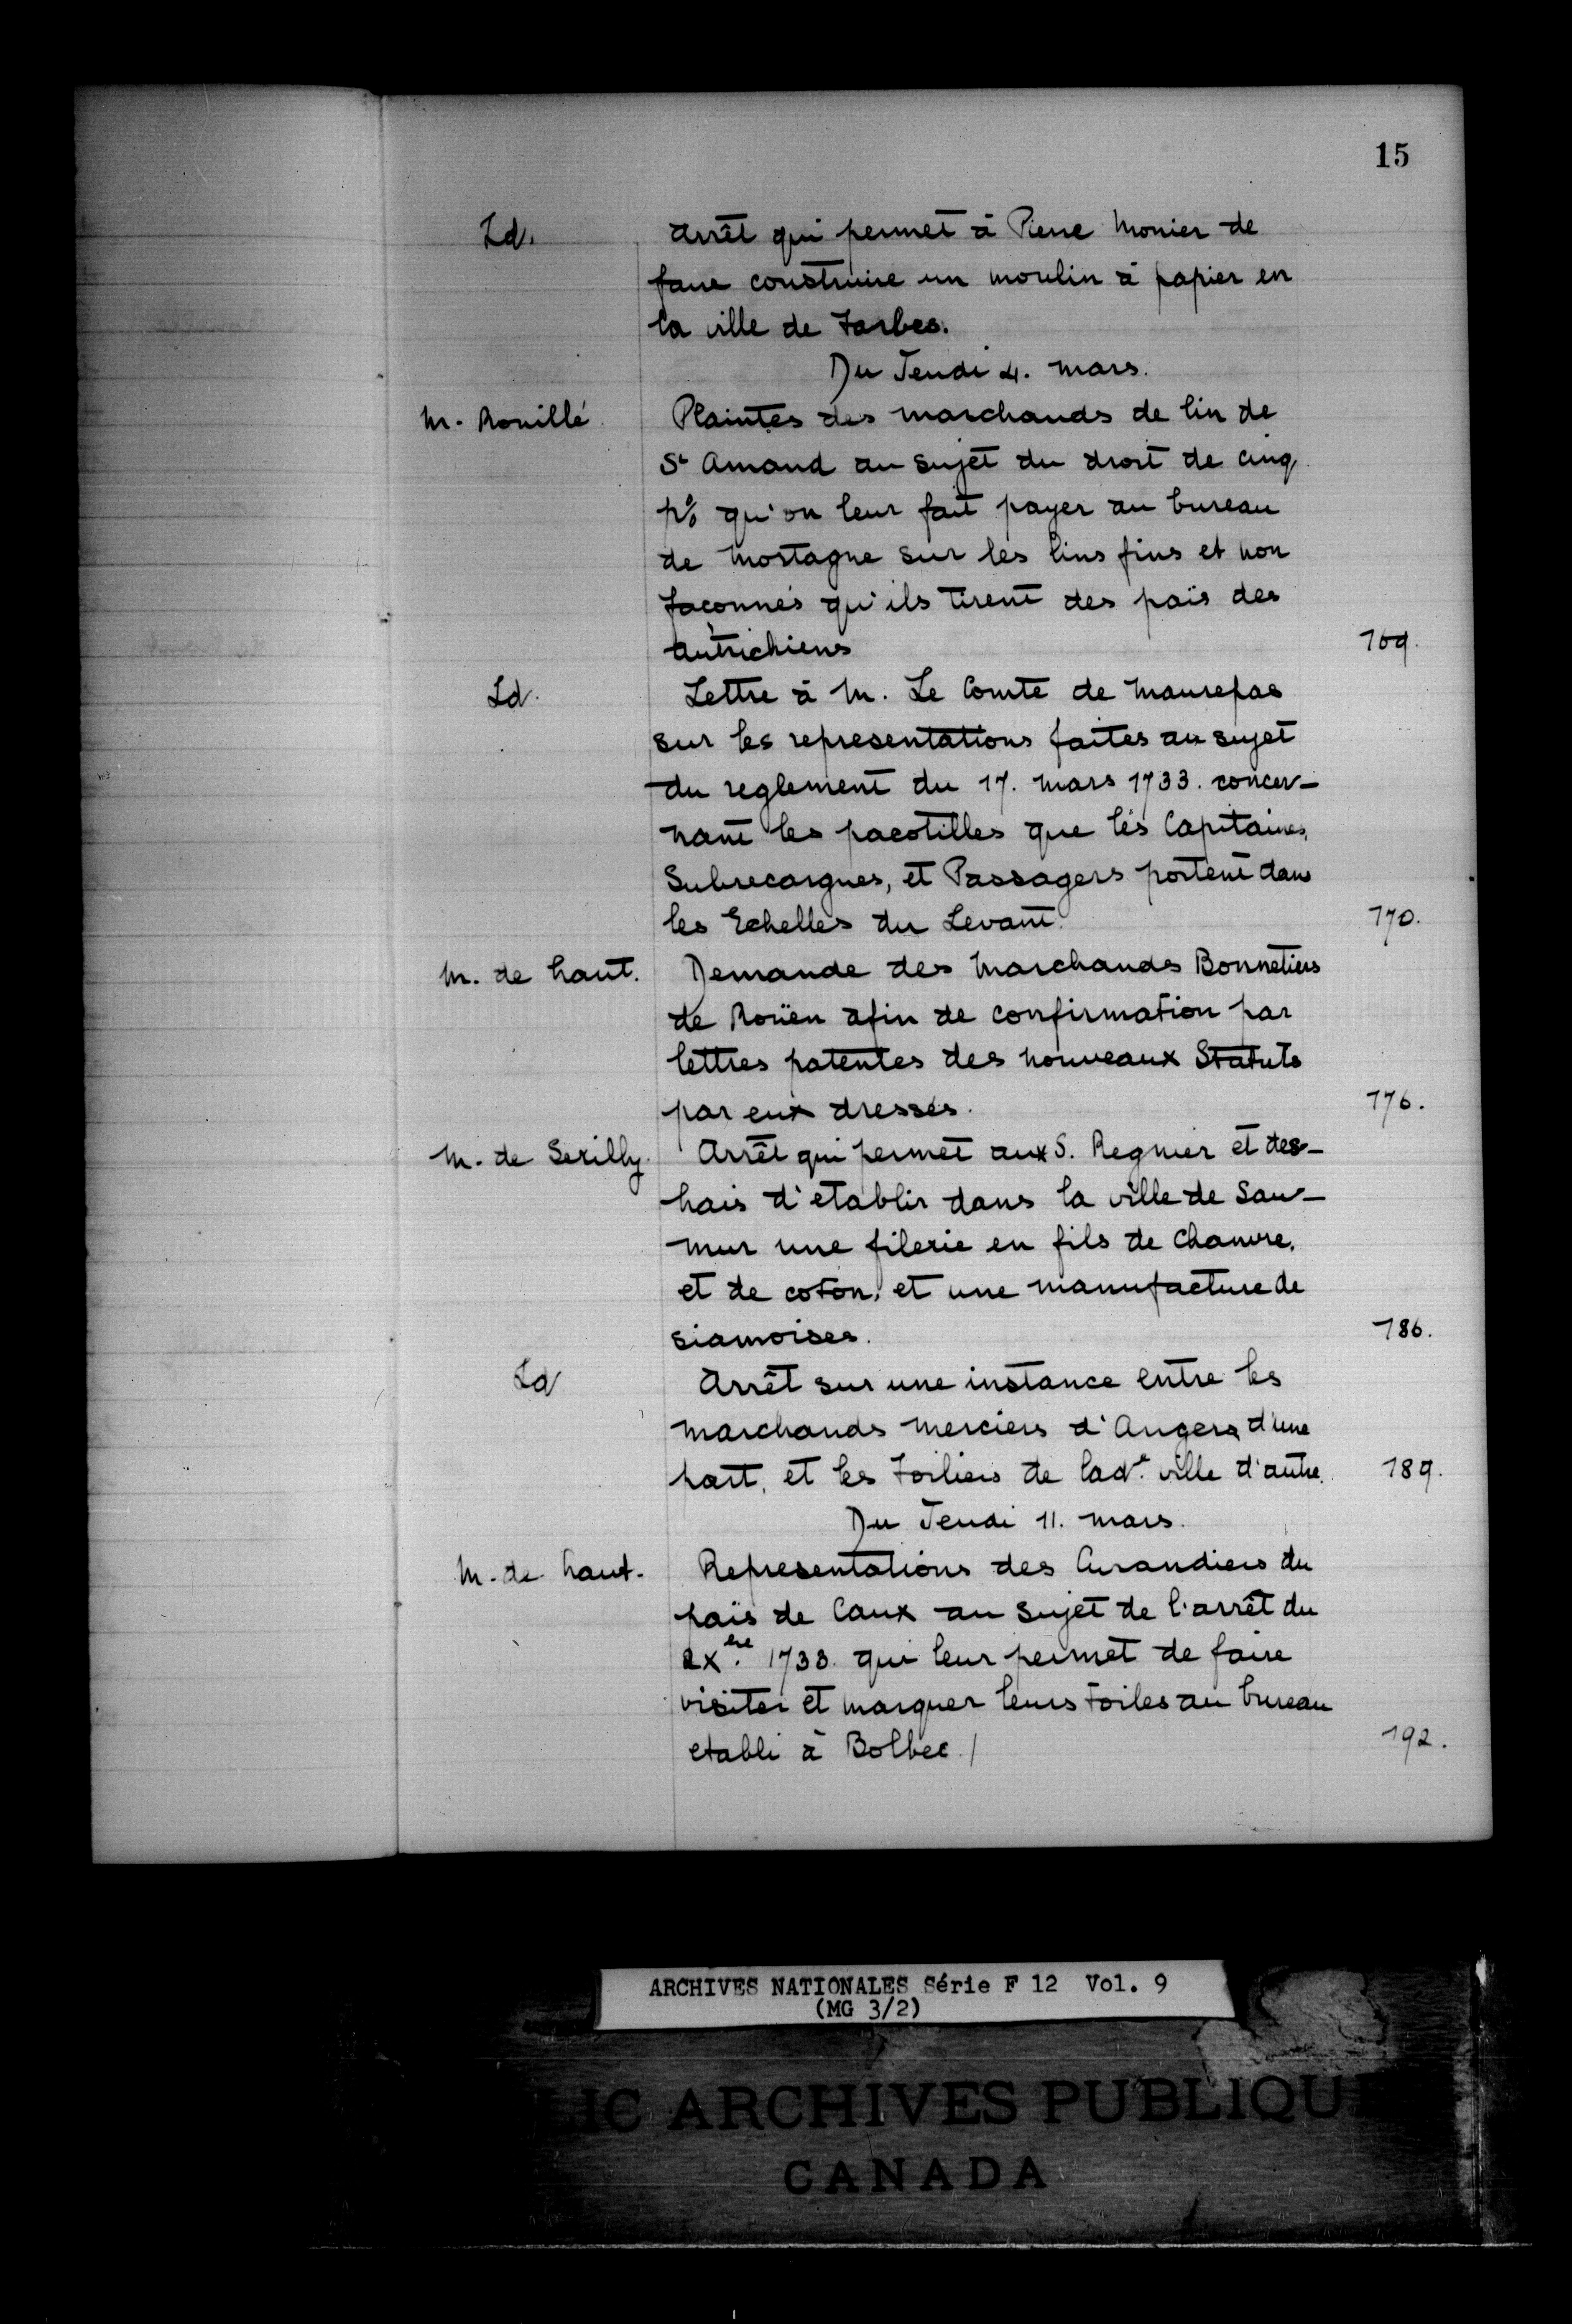 15
Id. Arrêt qui permet à Pierre Monier de
faire construire un moulin à papier en
la ville de Tarbes.
Du Jeudi 4. mars.
M. Rouillé. Plaintes des marchands de lin de
St Amand au sujet du droit de cinq
p% qu'on leur fait payer au bureau
de Mortagne sur les lins fins et non
façonnés qu'ils tirent des païs des
autrichiens 169.
Id. Lettre à M. Le Comte de Maurepas
sur les representations faites au sujet
du reglement du 17. mars 1733. concer-
nant les pacotilles que les Capitaines,
Subrecargues, et Passagers portent dans
les Echelles du Levant. 170.
M. de haut. Demande des Marchands Bonnetiers
de Roüen afin de confirmation par
lettres patentes des nouveaux Statuts
par eux dressés. 176.
M. de Serilly. Arrêt qui permet aux S. Regnier et des-
hais d'etablir dans la ville de Sau-
mur une filerie en fils de Chanvre,
et de coton, et une manufacture de
siamoises. 186.
Id Arrêt sur une instance entre les
marchands merciers d'Angers d'une
part, et les Toiliers de lad.e ville d'autre. 189.
Du Jeudi 11. mars.
M. de haut. Representations des Curandiers du
païs de Caux au sujet de l'arrêt du
2 Xbre. 1733. qui leur permet de faire
visiter et marquer leurs toiles au bureau
etabli à Bolbec. / 192.
ARCHIVES NATIONALES Série F 12 Vol. 9
(MG 3/2)
LIC ARCHIVES PUBLIQU
CANADA